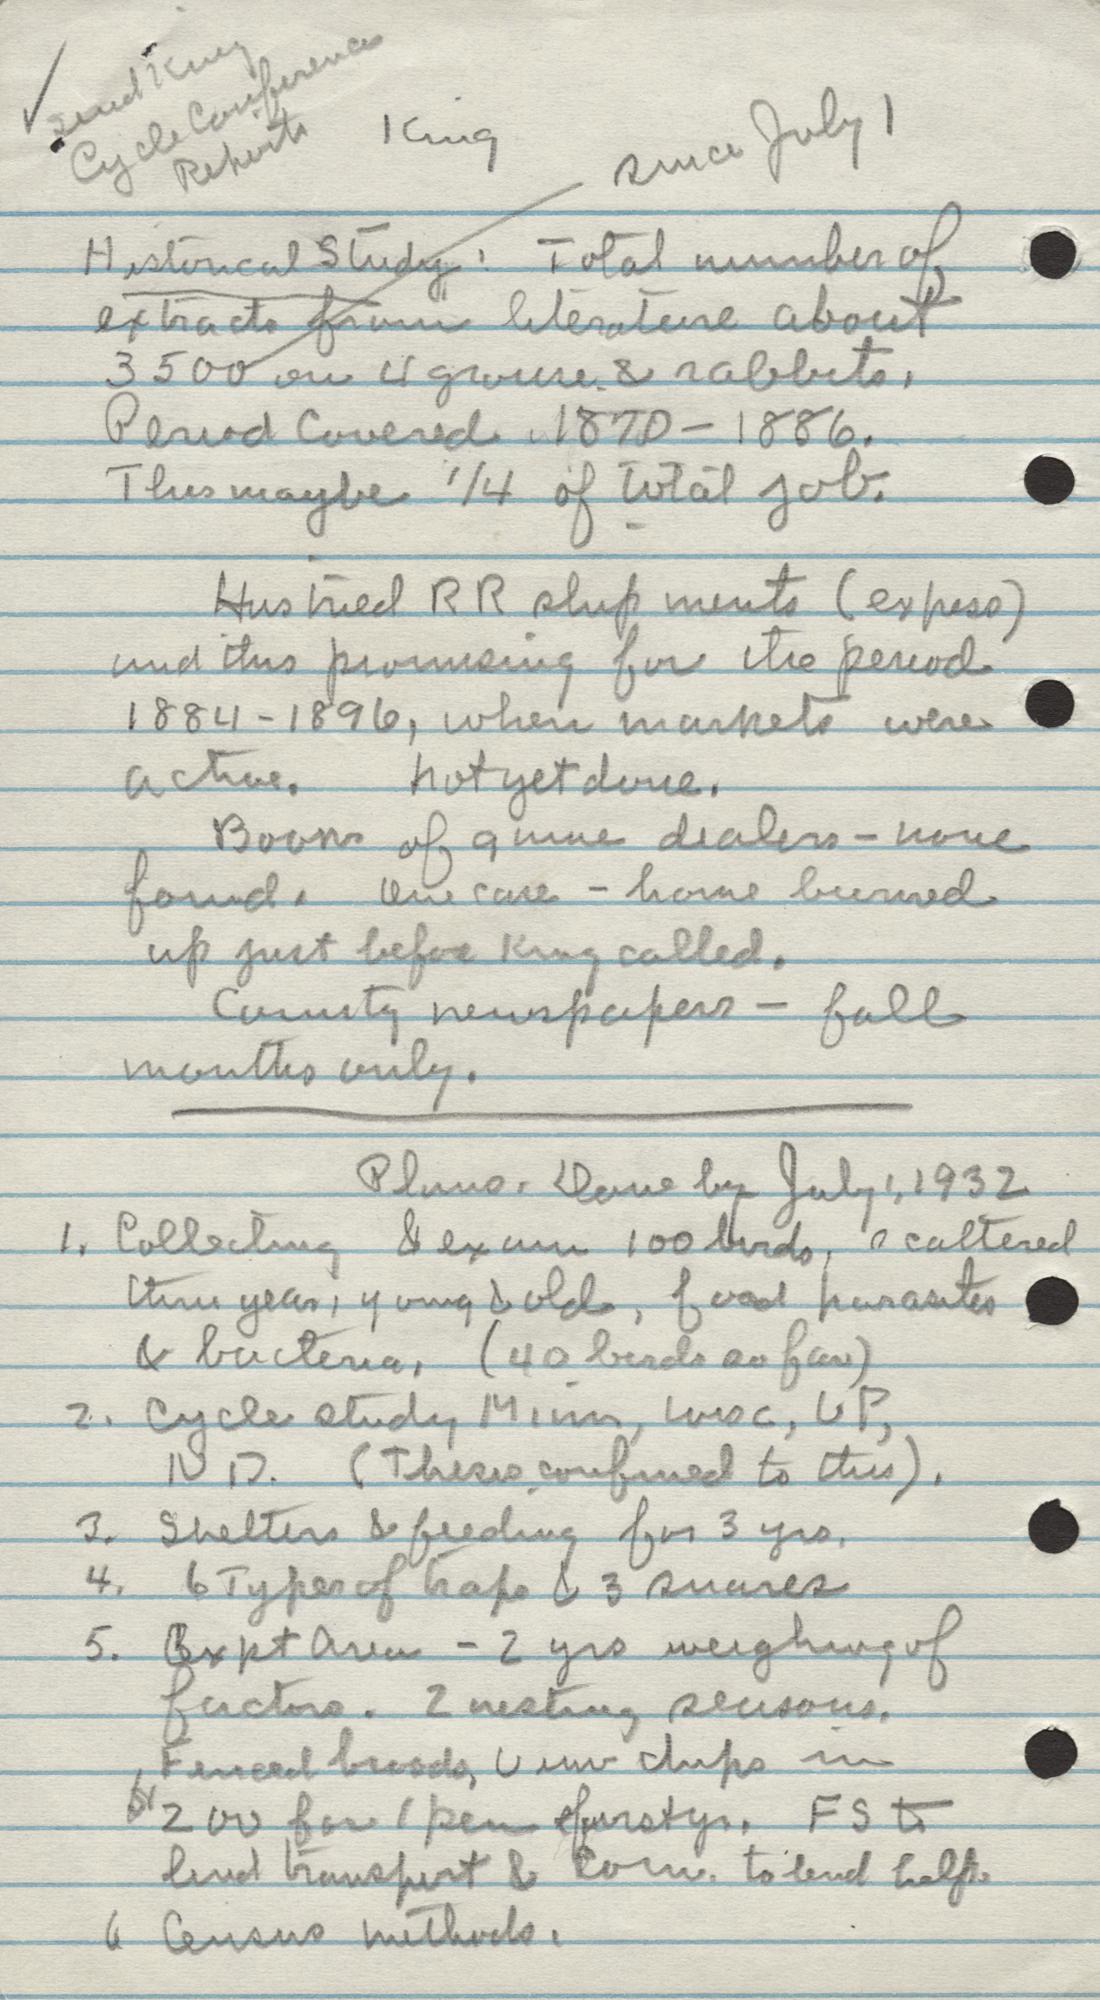 Send King
Cycle Conference
Reports
King
since July 1
Historical Study: Total number of
extracts from literature about
3500 on 4 grouse & rabbits.
Period Covered 1870-1886.
This maybe 1/4 of total job.
Has tried RR shipments (express)
and this promising for the period
1884-1896, when markets were
active. Not yet done.
Books of game dealers - none
found. One case - home burned
up just before King called.
County newspapers - fall
months only.
Plans. Done by July 1, 1932
1. Collecting & exam 100 birds, scattered
thru year, young & old, food parasites
& bacteria. (40 birds so far)
2. Cycle study Minn, Wisc, UP,
N D. (Thesis confined to this).
3. Shelters & feeding for 3 yrs.
4. 6 Types of traps & 3 snares
5. Expt Area - 2 yrs weighing of
factors. 2 nesting seasons.
Fenced broods, Univ chips in
$200 for 1 pen first yr. FS to
lend transport & Com. to lend help.
6 Census methods.